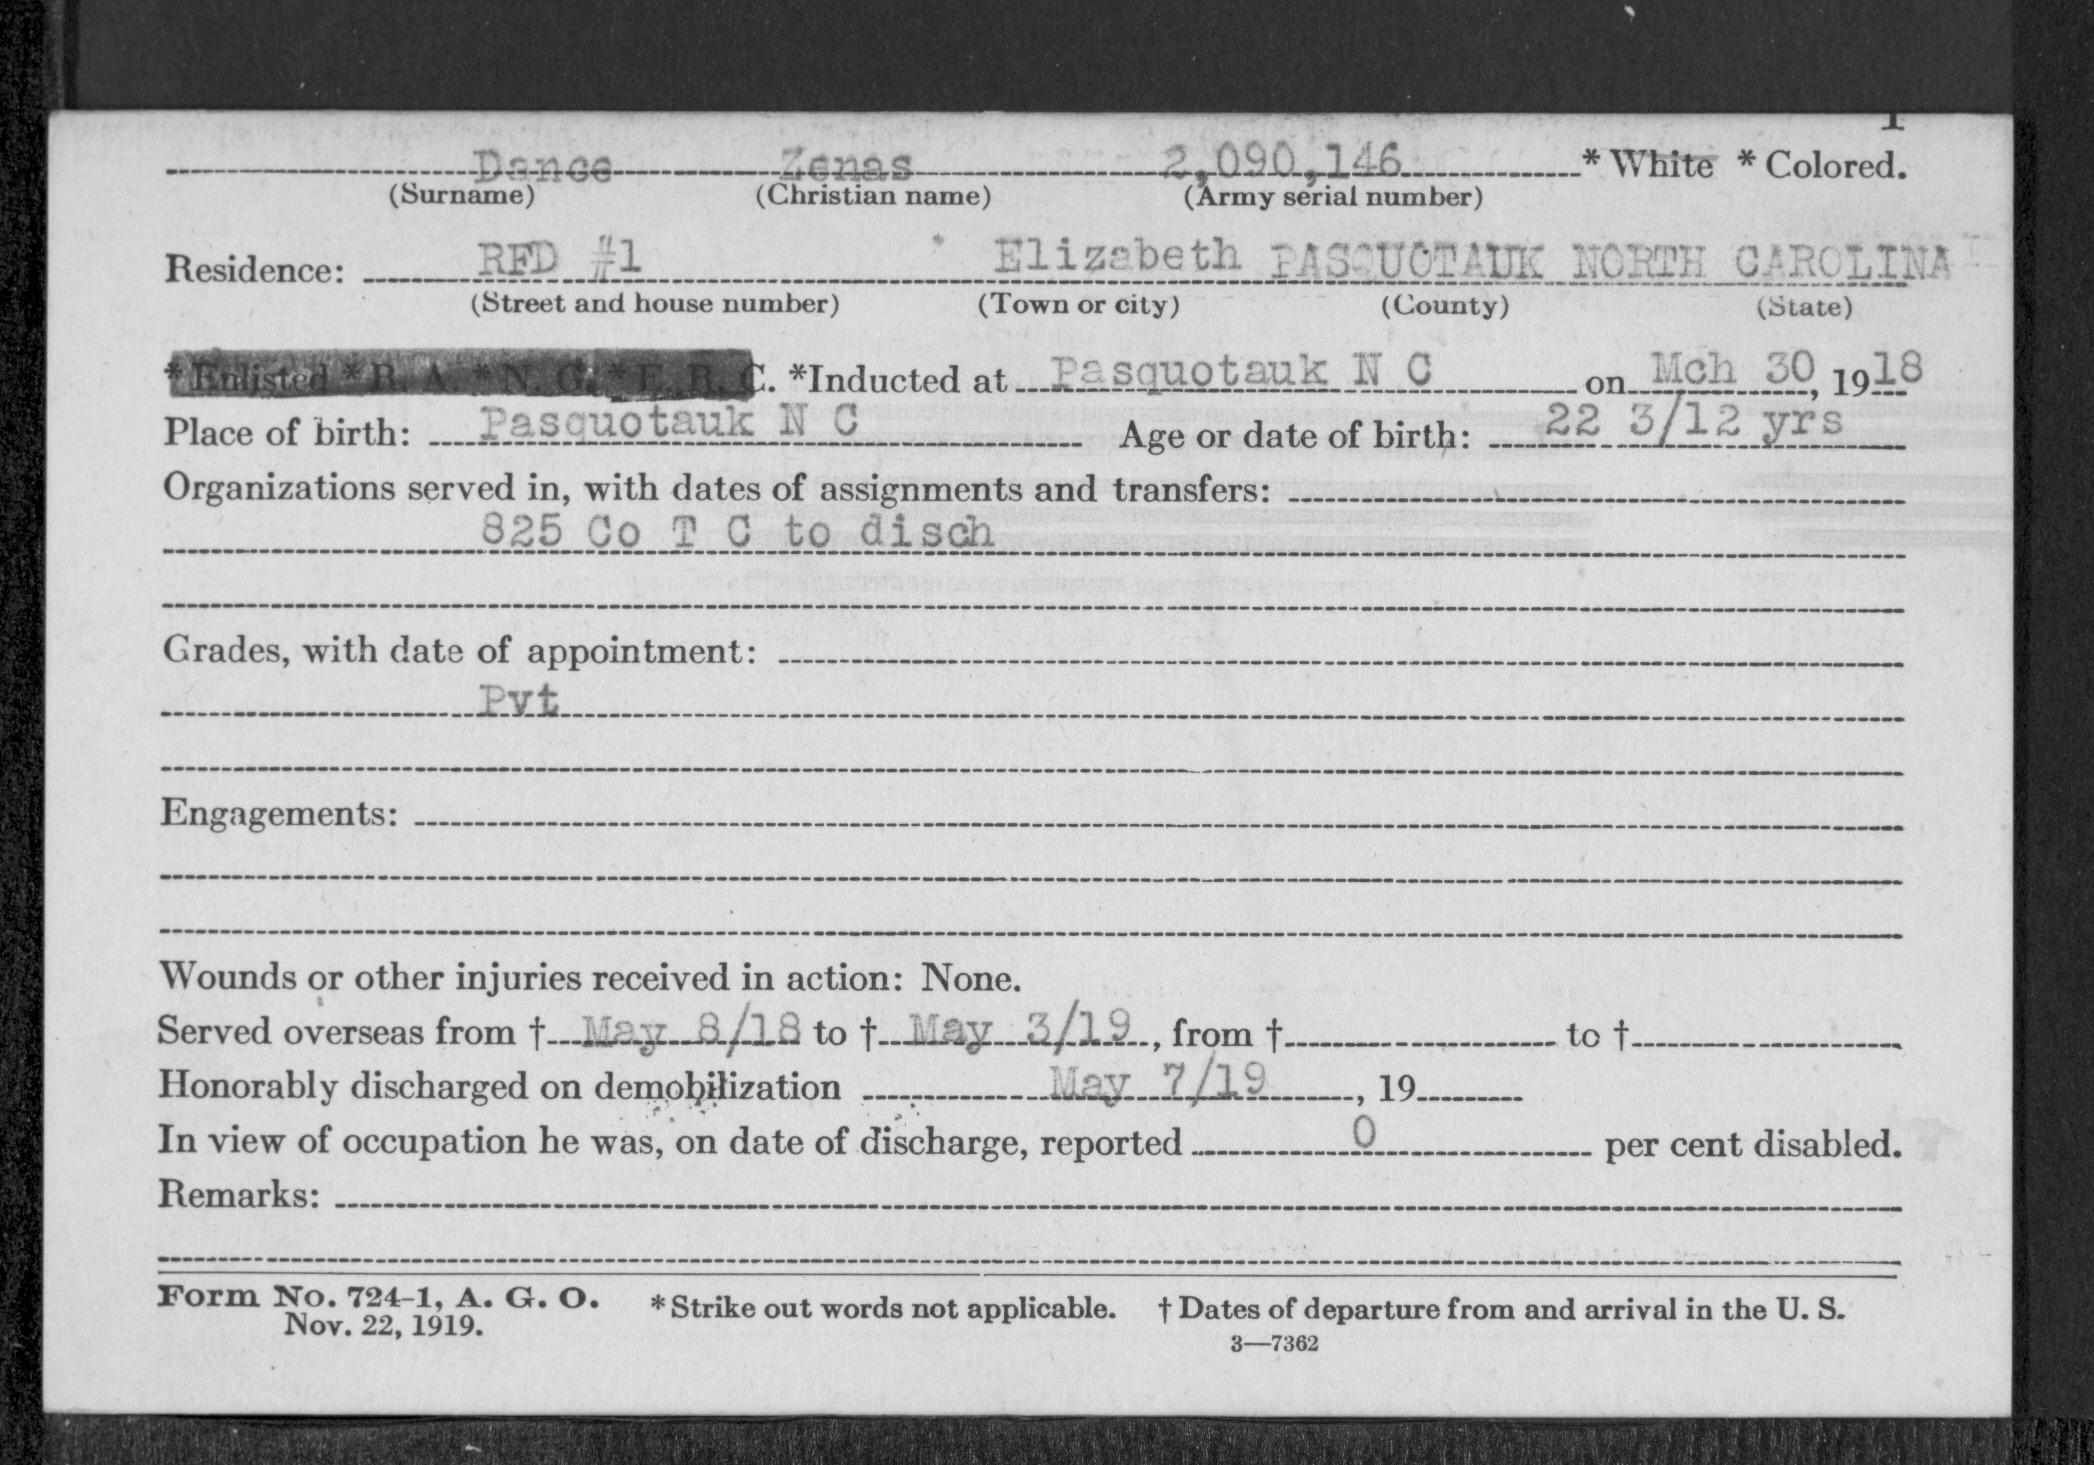 Dance Zenas 2,090,146 * White * Colored.
(Surname) (Christian name) (Army serial number)
Residence: RFD #1 Elizabeth PASQUOTAUK NORTH CAROLINA
(Street and house number) (Town or city) (County) (State)
* Enlisted * R. A. * N. G. * E. R. C. *Inducted at Pasquotauk N C on Mch 30, 1918
Place of birth: Pasquotauk N C Age or date of birth: 22 3/12 yrs
Organizations served in, with dates of assignments and transfers:
825 Co T C to disch
Grades, with date of appointment:
Pvt
Engagements:
Wounds or other injuries received in action: None.
Served overseas from † May 8/18 to † May 3/19, from † to †
Honorably discharged on demobilization May 7/19, 19
In view of occupation he was, on date of discharge, reported 0 per cent disabled.
Remarks:
Form No. 724-1, A. G. O. * Strike out words not applicable. † Dates of departure from and arrival in the U. S.
Nov. 22, 1919.
3—7362